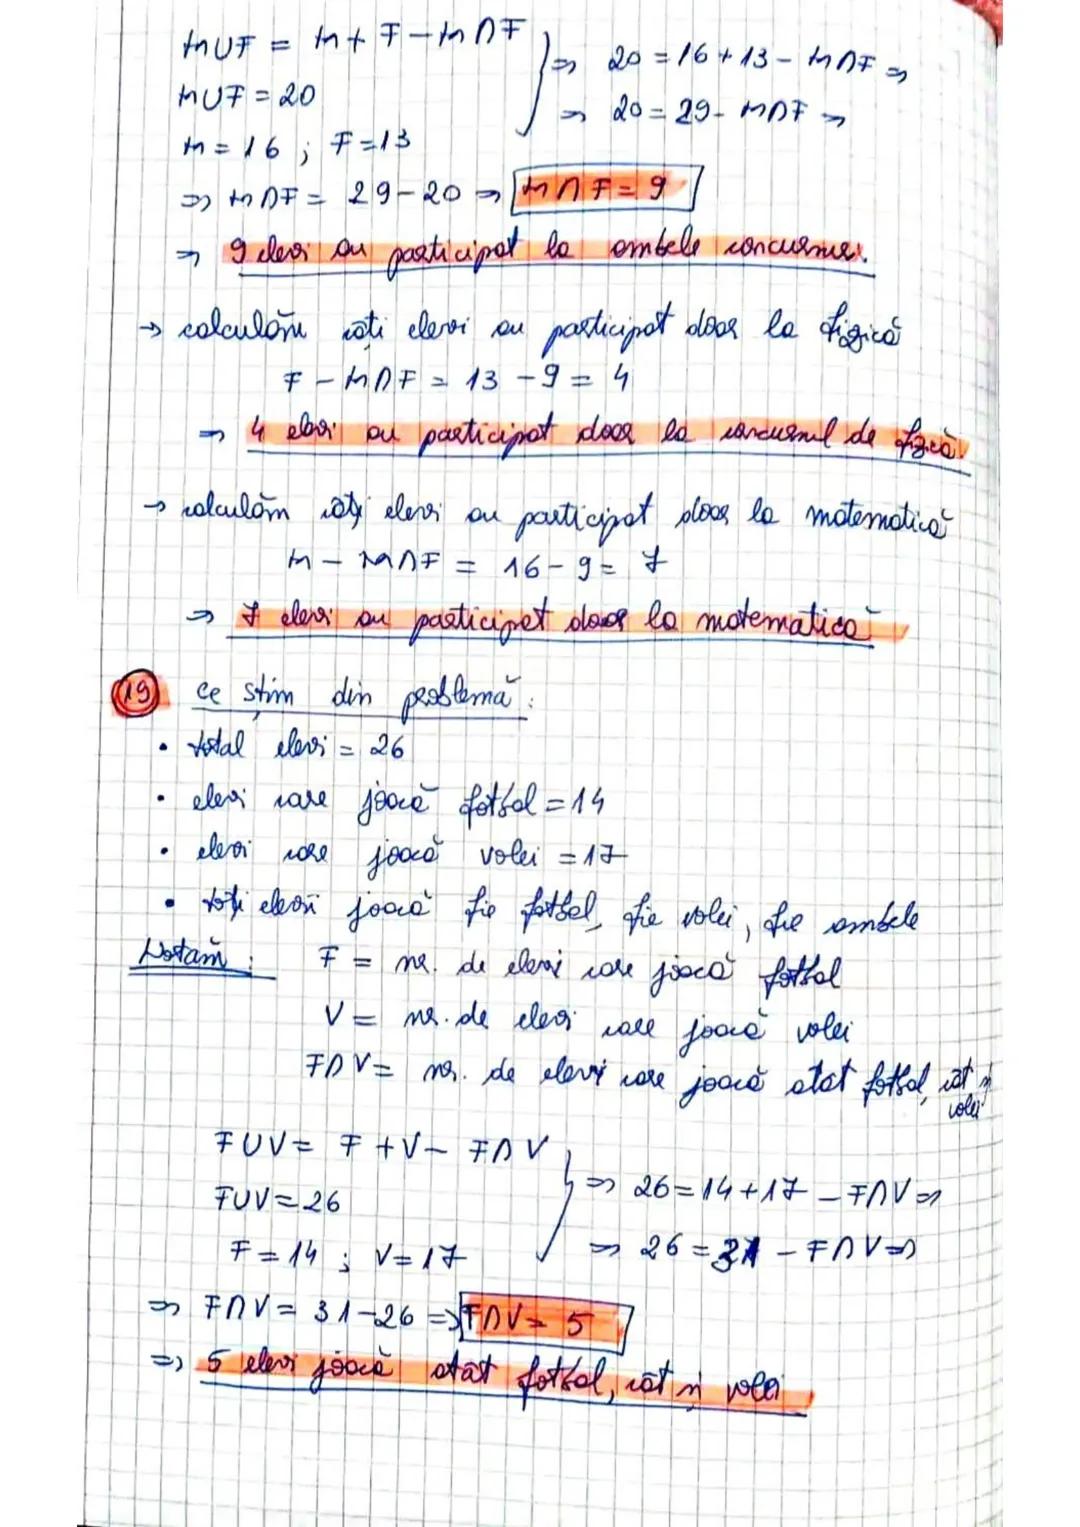 M∪F = M + F - M∩F
M∪F = 20
M = 16 ; F = 13
⇒ 20 = 16 + 13 - M∩F ⇒
⇒ 20 = 29 - M∩F ⇒
⇒ M∩F = 29 - 20 ⇒ M∩F = 9
⇒ 9 elevi au participat la ambele concursuri.
→ calculăm câți elevi au participat doar la fizică
F - M∩F = 13 - 9 = 4
⇒ 4 elevi au participat doar la concursul de fizică.
→ calculăm câți elevi au participat doar la matematică
M - M∩F = 16 - 9 = 7
⇒ 7 elevi au participat doar la matematică
19 ce știm din problemă :
• total elevi = 26
• elevi care joacă fotbal = 14
• elevi care joacă volei = 17
• toți elevii joacă fie fotbal, fie volei, fie ambele
Notăm : F = nr. de elevi care joacă fotbal
V = nr. de elevi care joacă volei
F∩V = nr. de elevi care joacă atât fotbal, cât și
volei
F∪V = F + V - F∩V
F∪V = 26
F = 14 ; V = 17
⇒ 26 = 14 + 17 - F∩V ⇒
⇒ 26 = 31 - F∩V ⇒
⇒ F∩V = 31 - 26 ⇒ F∩V = 5
⇒ 5 elevi joacă atât fotbal, cât și volei